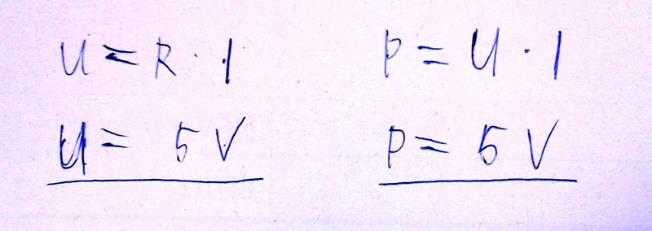 U = R · I
U = 5 V
P = U · I
P = 5 V